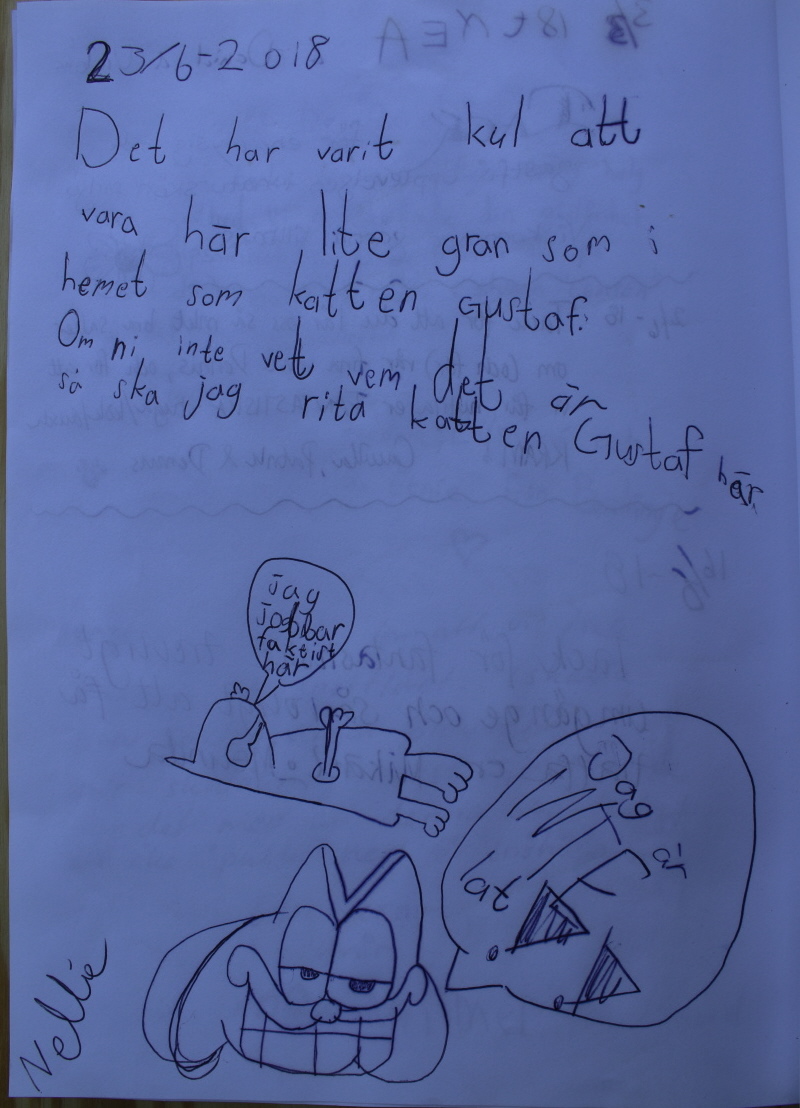 23/6-2018
Det har varit kul att
vara här lite gran som i
hemet som katten Gustaf.
Om ni inte vet vem det är
så ska jag rita katten Gustaf här.
jag
jobbar
faktist
här
Jag
är
lat
Nellie